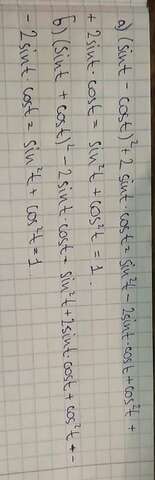 а) (sint - cost)² + 2 sint cost = sin²t - 2sint·cost + cos²t +
+ 2sint·cost = sin²t + cos²t = 1.
б) (sint + cost)² - 2sint·cost = sin²t + 2sint·cost + cos²t + -
- 2sint·cost = sin²t + cos²t = 1